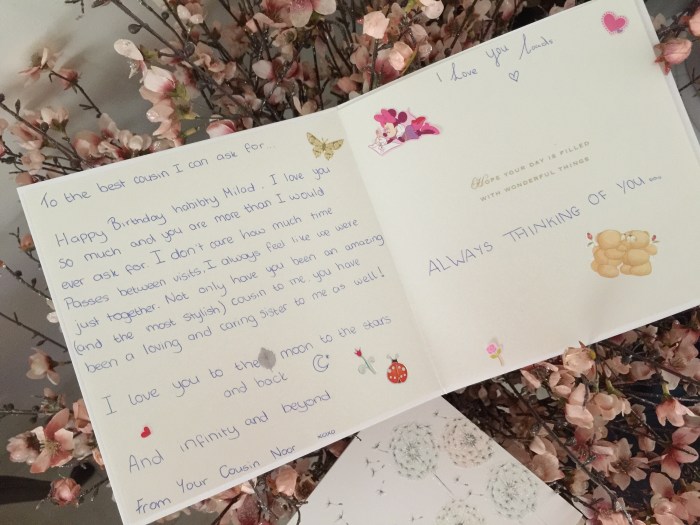 To the best cousin I can ask for...
Happy Birthday habibty Milad. I love you
so much and you are more than I would
ever ask for. I don't care how much time
Passes between visits, I always feel like up were
just together. Not only have you been an amazing
(and the most stylish) cousin to me. you have
been a loving and caring sister to me as well!
I love you to the moon to the stars
and back
And infinity and beyond
From Your Cousin Noor xoxo
I love you loads
HOPE YOUR DAY IS FILLED
WITH WONDERFUL THINGS
ALWAYS THINKING OF YOU...